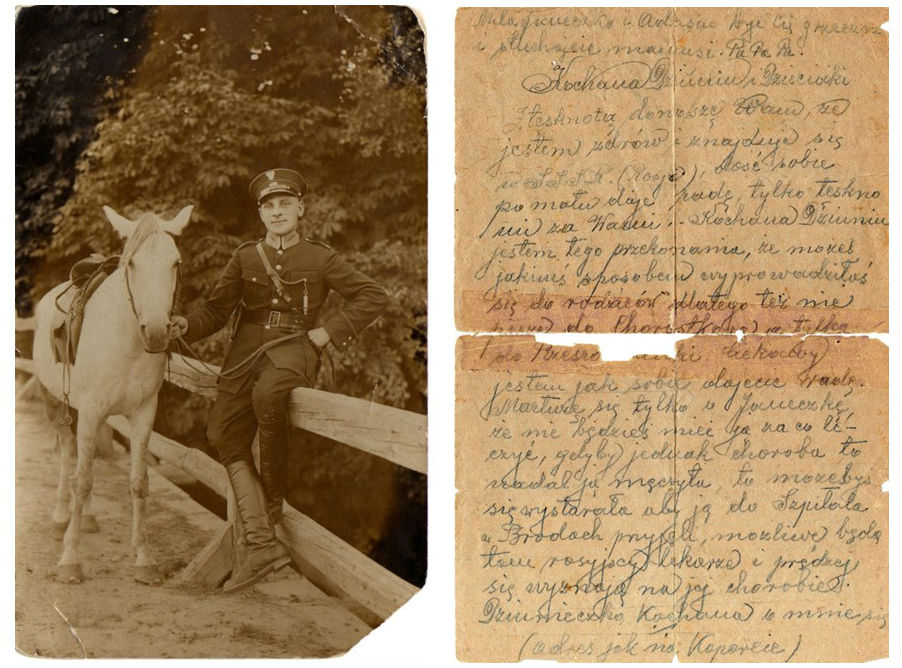 Miła Janeczko i Adasiu bądź grzeczni
i słuchajcie mamusi. Pa Pa Pa.
Kochana Dziuniu i Dzieciaki
Z tęsknotą donoszę Wam, że
jestem zdrów i znajduje się
w S.S.S.R. (Rosja), dość sobie
po matu daje radę, tylko teskno
mi za Wami. Kochana Dziuniu
jestem tego przekonania, że możeś
jakimś sposobem wyprowadziłaś
się do rodziców dlatego też nie
piszę do Chorostkowa tylko
do Rzeszo ciekawy
jestem jak sobie dajecie radę.
Martwię się tylko o Janeczkę,
że nie będziesz mieć ja za co le-
czyć, gdyby jednak choroba to
nadal ją męczyła, to możebyś
się wystarała aby ją do Szpitala
w Brodach przyjęli, możliwe będą
tam rosyjscy lekarze i prędzej
się wyznają na jej chorobie.
Dziuneczko Kochana o mnie się
(adres jak na Kopercie)